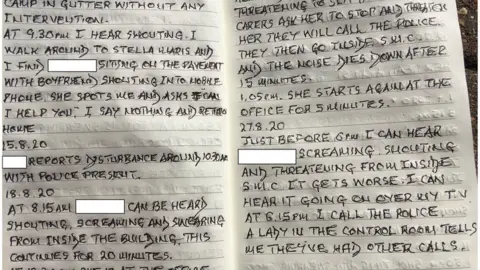 CAMP IN GUTTER WITHOUT ANY
INTERVENTION.
AT 9.30PM I HEAR SHOUTING. I
WALK AROUND TO STELLA MARIS AND
I FIND SITTING ON THE PAVEMENT
WITH BOYFRIEND SHOUTING INTO MOBILE
PHONE. SHE SPOTS ME AND ASKS CAN
I HELP YOU, I SAY NOTHING AND RETURN
HOME
15.8.20
REPORTS DISTURBANCE AROUND 10.30AM
WITH POLICE PRESENT.
18.8.20
AT 8.15AM CAN BE HEARD
SHOUTING, SCREAMING AND SWEARING
FROM INSIDE THE BUILDING. THIS
CONTINUES FOR 20 MINUTES.
THREATENING TO
CARERS ASK HER TO STOP AND
HER THEY WILL CALL THE POLICE.
THEY THEN GO INSIDE S.M.C.
AND THE NOISE DIES DOWN AFTER
15 MINUTES.
1.05PM. SHE STARTS AGAIN AT THE
OFFICE FOR 5 MINUTES.
27.8.20
JUST BEFORE 6PM I CAN HEAR
SCREAMING, SHOUTING
AND THREATENING FROM INSIDE
S.M.C. IT GETS WORSE. I CAN
HEAR IT GOING ON OVER MY T.V
AT 6.15PM I CALL THE POLICE
A LADY IN THE CONTROL ROOM TELLS
ME THEY'VE HAD OTHER CALLS